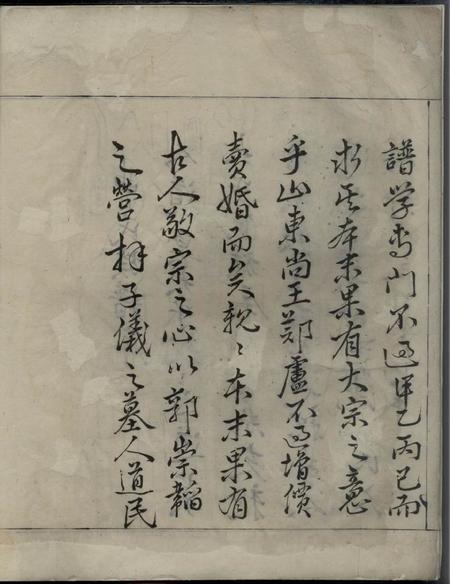 譜学専門不過甲乙丙已而
求其本末果有大宗之意
乎山東尚王鄭盧不過增價
賣婚而矣親〻本末果有
古人敬宗之心以郭崇韜
之營拜子儀之墓人道民